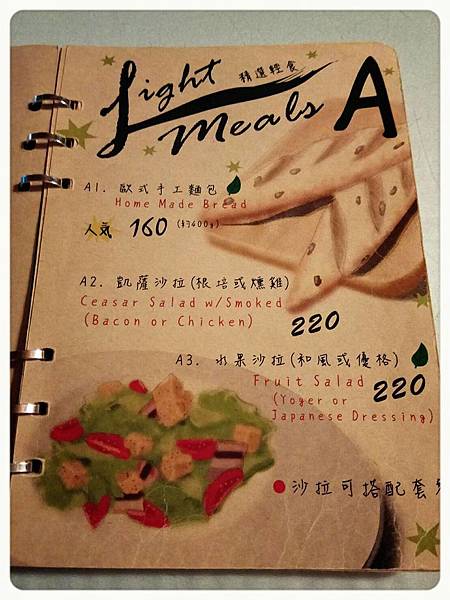 Light
精選輕食
Meals
A
A1. 歐式手工麵包
Home Made Bread
人氣 160 (約400g)
A2. 凱薩沙拉(根培或燻雞)
Ceasar Salad w/Smoked
(Bacon or Chicken)
220
A3. 水果沙拉(和風或優格)
Fruit Salad
220
(Yoger or
Japanese Dressing)
●沙拉可搭配套